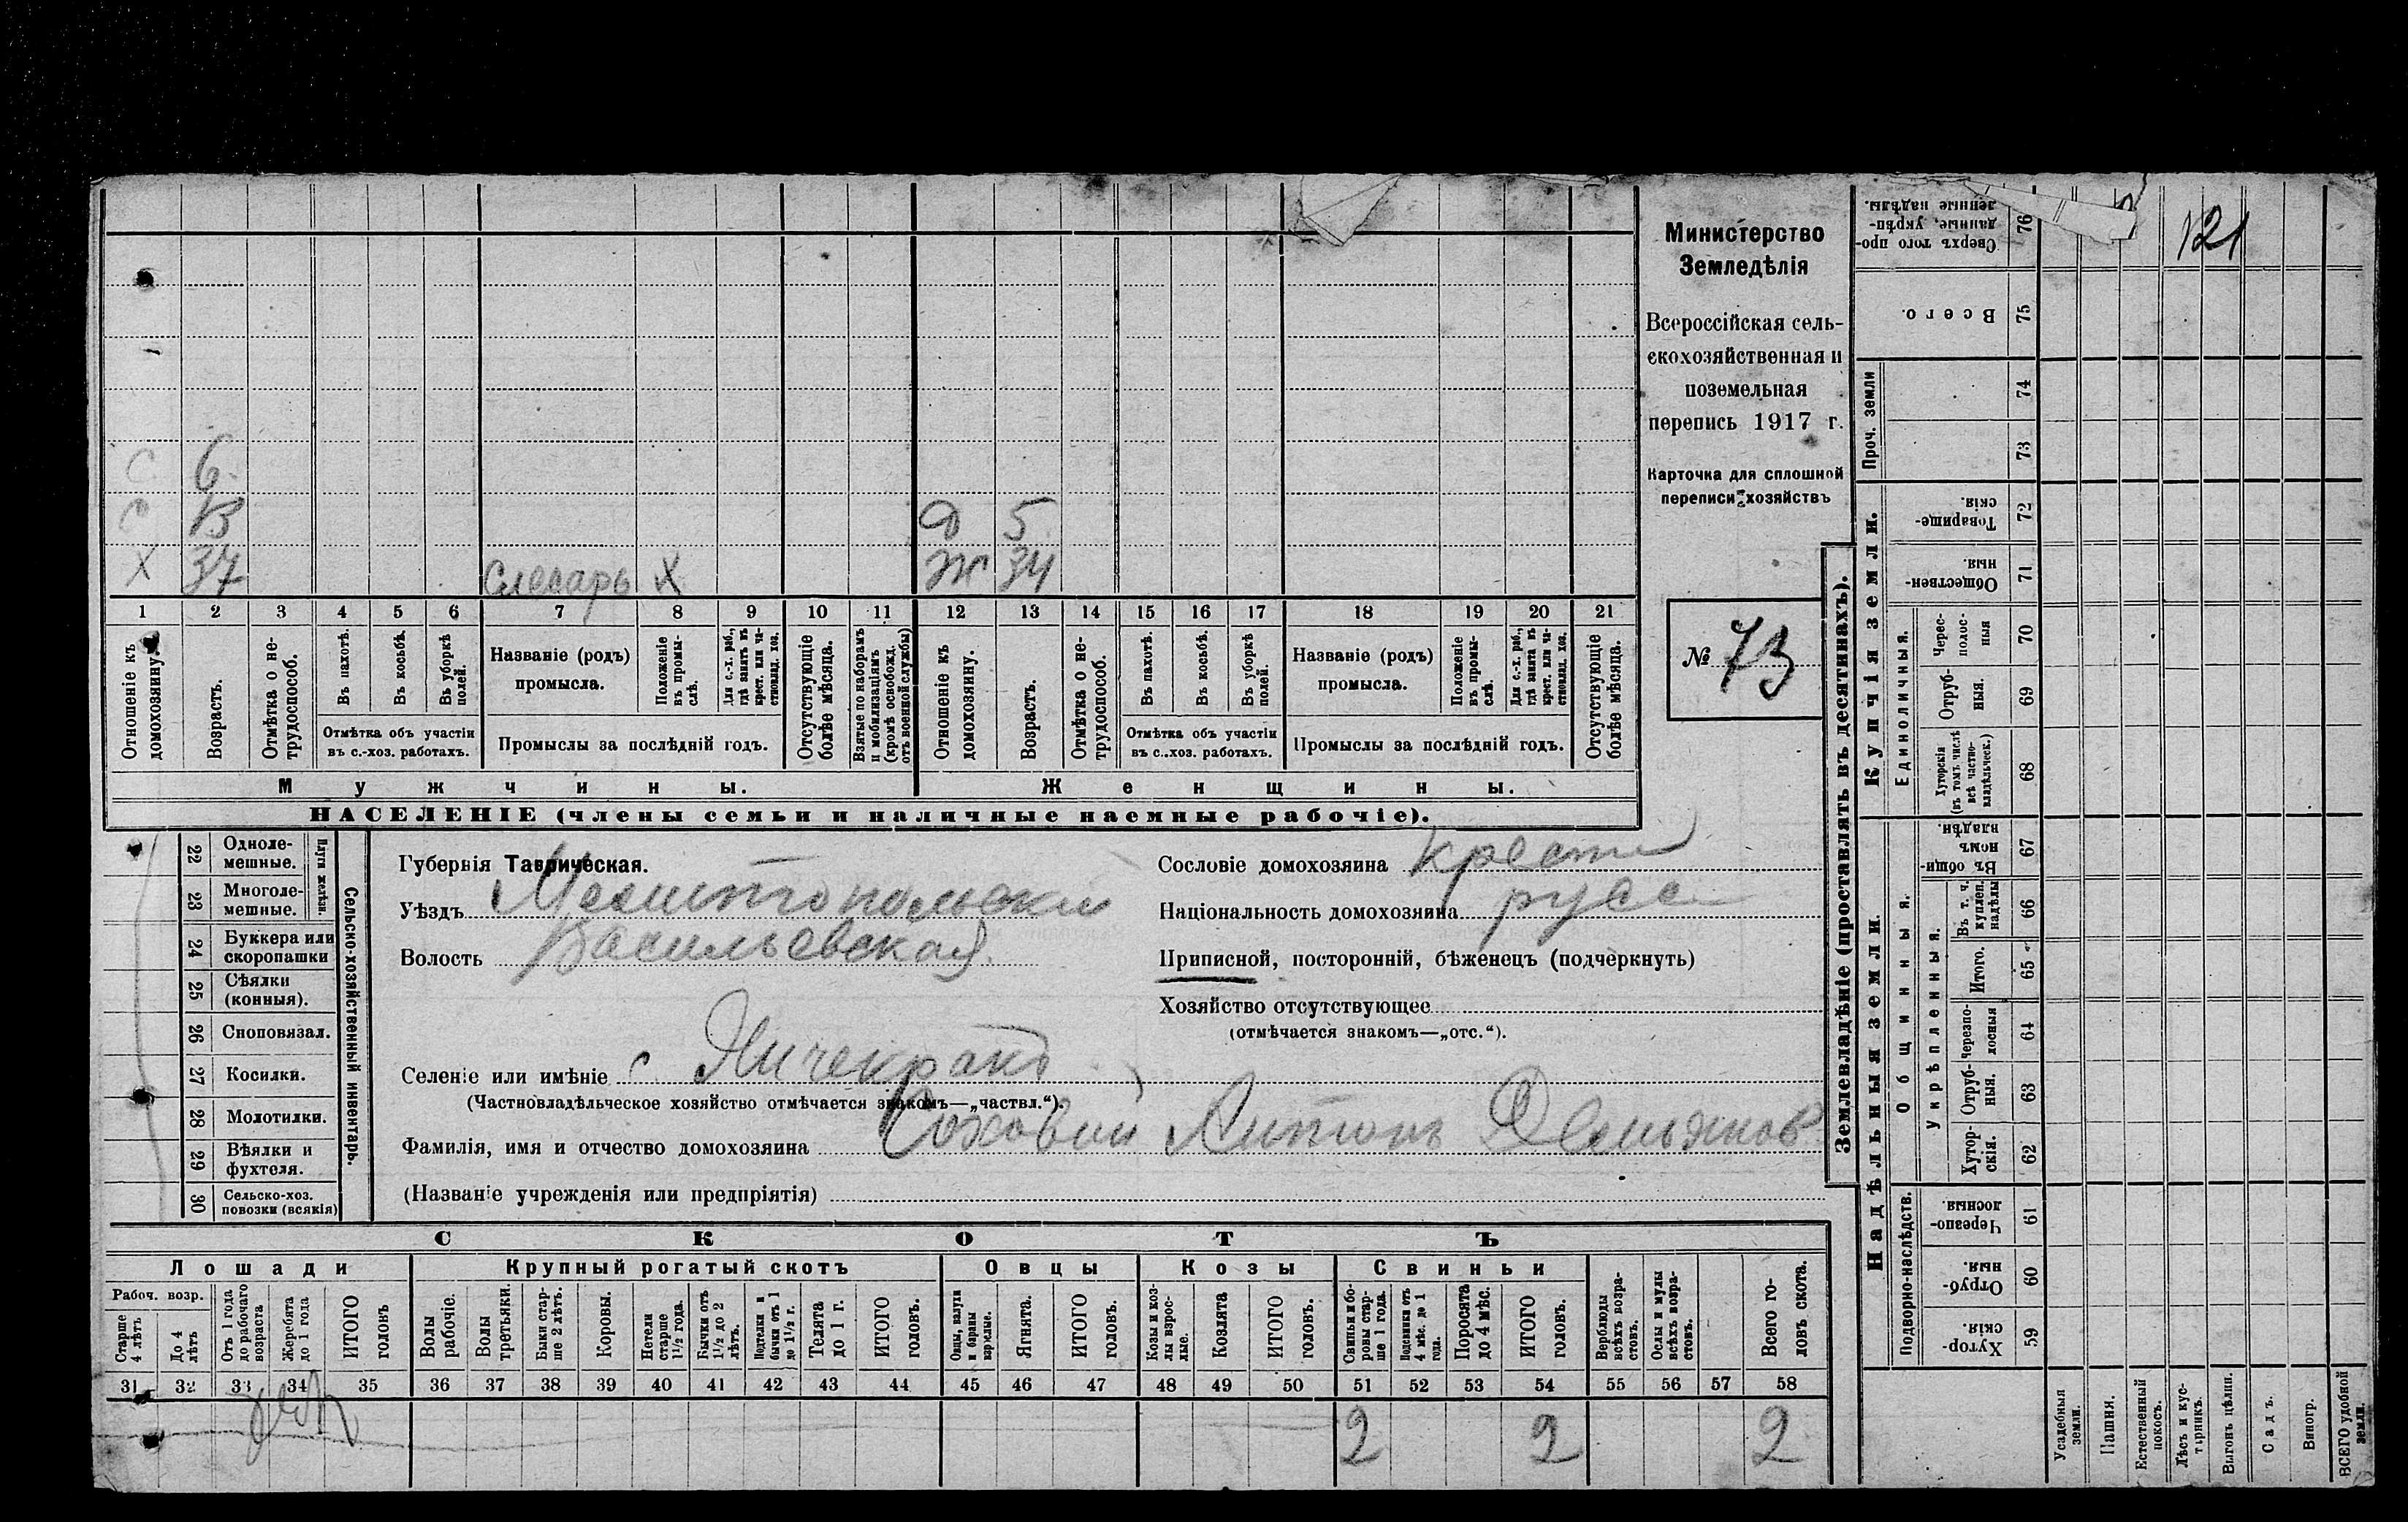 121
Министерство
Земледѣлія
Всероссійская сель-
скохозяйственная и
поземельная
перепись 1917 г.
Карточка для сплошной
переписи хозяйствъ
№ 73
С 6
С 13 Д 5
Х 37 Слесарь Х Ж 34
1 2 3 4 5 6 7 8 9 10 11 12 13 14 15 16 17 18 19 20 21
Отношеніе къ домохозяину.
Возрастъ.
Отмѣтка о не-трудоспособ.
Въ пахотѣ.
Въ косьбѣ.
Въ уборкѣ полей.
Отмѣтка объ участіи
въ с.-хоз. работахъ.
Названіе (родъ)
промысла.
Положеніе въ промы-слѣ.
Для с.-х. раб., гдѣ занятъ въ крест. или ча-стновлад. хоз.
Промыслы за послѣдній годъ.
Отсутствующіе болѣе мѣсяца.
Взятые по наборамъ и мобилизаціямъ (кромѣ освобожд. отъ военной службы)
Отношеніе къ домохозяину.
Возрастъ.
Отмѣтка о не-трудоспособ.
Въ пахотѣ.
Въ косьбѣ.
Въ уборкѣ полей.
Отмѣтка объ участіи
въ с.-хоз. работахъ.
Названіе (родъ)
промысла.
Положеніе въ промы-слѣ.
Для с.-х. раб., гдѣ занята въ крест. или ча-стновлад. хоз.
Промыслы за послѣдній годъ.
Отсутствующіе болѣе мѣсяца.
Мужчины. Женщины.
НАСЕЛЕНІЕ (члены семьи и наличные наемные рабочіе).
22 Одноле-мешные.
23 Многоле-мешные.
Плуги желѣзн.
24 Буккера или скоропашки
25 Сѣялки (конныя).
26 Сноповязал.
27 Косилки.
28 Молотилки.
29 Вѣялки и фухтеля.
30 Сельско-хоз. повозки (всякія)
Сельско-хозяйственный инвентарь.
Губернія Таврическая.
Уѣздъ Мелитопольскій
Волость Васильевская
Селеніе или имѣніе с. Янчекракъ
(Частновладѣльческое хозяйство отмѣчается знакомъ—„частвл.“).
Фамилія, имя и отчество домохозяина Антонъ Демьянов
(Названіе учрежденія или предпріятія)
Сословіе домохозяина крест
Національность домохозяина русс
Приписной, посторонній, бѣженецъ (подчеркнуть)
Хозяйство отсутствующее
(отмѣчается знакомъ—„отс.“).
СКОТЪ
Лошади Крупный рогатый скотъ Овцы Козы Свиньи
Рабоч. возр.
Старше 4 лѣтъ
До 4 лѣтъ
Отъ 1 года до рабочаго возраста
Жеребята до 1 года
ИТОГО головъ
Волы рабочіе.
Волы третьяки.
Быки стар-ше 2 лѣтъ.
Коровы.
Нетели старше 1½ года.
Бычки отъ 1½ до 2 лѣтъ.
Подтелки и бычки отъ 1 до 1½ г.
Телята до 1 г.
ИТОГО головъ.
Овцы, валухи и бараны взрослые.
Ягнята.
ИТОГО головъ.
Козы и коз-лы взрос-лые.
Козлята
ИТОГО головъ.
Свиньи и бо-ровы стар-ше 1 года.
Подсвинки отъ 4 мѣс. до 1 года.
Поросята до 4 мѣс.
ИТОГО головъ.
Верблюды всѣхъ возра-стовъ.
Ослы и мулы всѣхъ возра-стовъ.
Всего го-ловъ скота.
31 32 33 34 35 36 37 38 39 40 41 42 43 44 45 46 47 48 49 50 51 52 53 54 55 56 57 58
2 2 2
Землевладѣніе (проставлять въ десятинахъ).
Надѣльныя земли. Купчія земли. Проч. земли
Подворно-наслѣдств.
Общинныя.
Укрѣпленныя.
Единоличныя.
Сверхъ того про-данные, укрѣп-ленные надѣлы. 76
Всего. 75
74
73
Товарище-скія. 72
Обществен-ныя. 71
Черес-полос-ныя 70
Отруб-ныя. 69
Хуторскія (въ томъ числѣ всѣ частно-владѣльческ.) 68
Въ общи-номъ владѣн. 67
Въ т. ч. куплен. надѣлы 66
Итого. 65
Черезпо-лосныя 64
Отруб-ныя. 63
Хутор-скія. 62
Черезпо-лосныя. 61
Отруб-ныя. 60
Хутор-скія. 59
Усадебныя земли.
Пашня.
Естественный покосъ.
Лѣсъ и кус-тарникъ.
Выгонъ цѣлин.
Садъ.
Виногр.
ВСЕГО удобной земли.